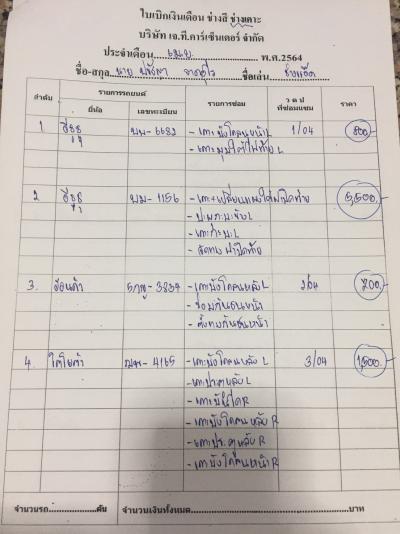 ใบเบิกเงินเดือน ช่างสี ช่างเคาะ
บริษัท เจ.ที.คาร์เซ็นเตอร์ จำกัด
ประจำเดือน เม.ย. พ.ศ.2564
ชื่อ-สกุล นาย ชื่อเล่น
ลำดับ รายการรถยนต์ รายการซ่อม ว ด ป ที่ซ่อมแซม ราคา
ยี่ห้อ เลขทะเบียน
1 อีซูซุ - 6682 - เคาะบังโคลนหน้า L 1/04 800
- เคาะมุมใต้ไฟท้าย L
2 อีซูซุ - 1156 - เคาะ+เปลี่ยนแผงใต้ฝาปิดท้าย 5,500
ฝาปิดท้าย
3. ฮอนด้า - 3834 - เคาะบังโคลนหลัง L 2/04 700
- ซ่อมกันชนหน้า
- กันชนหน้า
4. โตโยต้า - 4165 - เคาะบังโคลนหลัง L 3/04
- เคาะประตูหลัง L
- เคาะบันได R
- เคาะบังโคลนหลัง R
- เคาะประตูหลัง R
- เคาะบังโคลนหน้า R
จำนวนรถ คัน จำนวนเงินทั้งหมด บาท